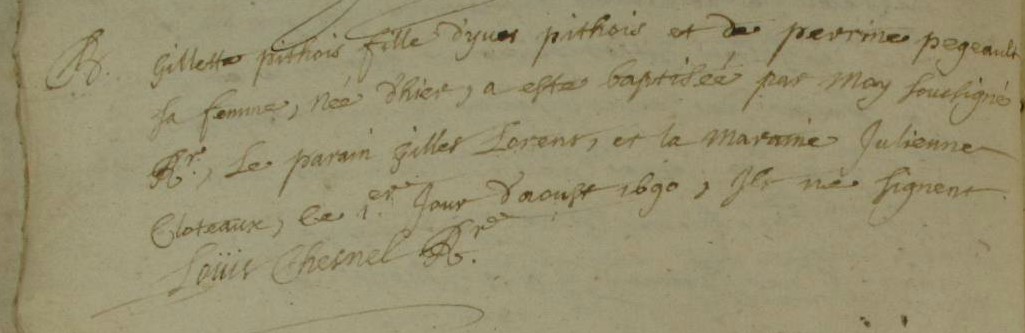 B. Gillette pithois fille d'yves pithois et de perrine pegeault
sa femme, Née d'hier, a este baptisée par Moy soussigné
Rr, Le parain gilles Lorent, et la Maraine Julienne
Cloteaux, le 1er Jour d'aoust 1690, Ils ne signent.
Loüis Chesnel Rre.